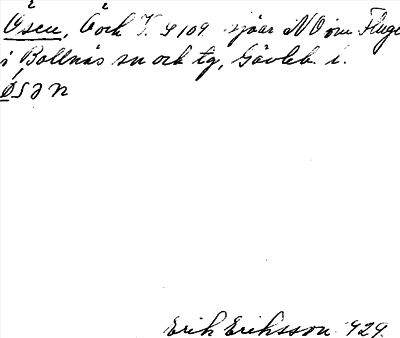 Ösen, Ö och V. S 109 sjöar NO om Fluge
i Bollnäs sn och tg, Gävleb. l.
Erik Eriksson 1929